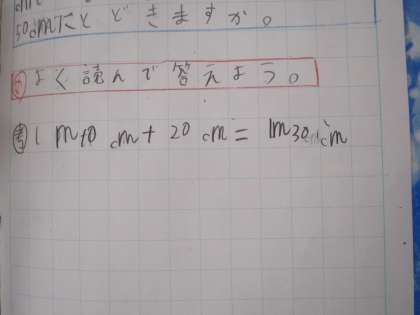 50cmにとどきますか。
よく読んで答えよう。
考 1m10cm+20cm=1m30cm